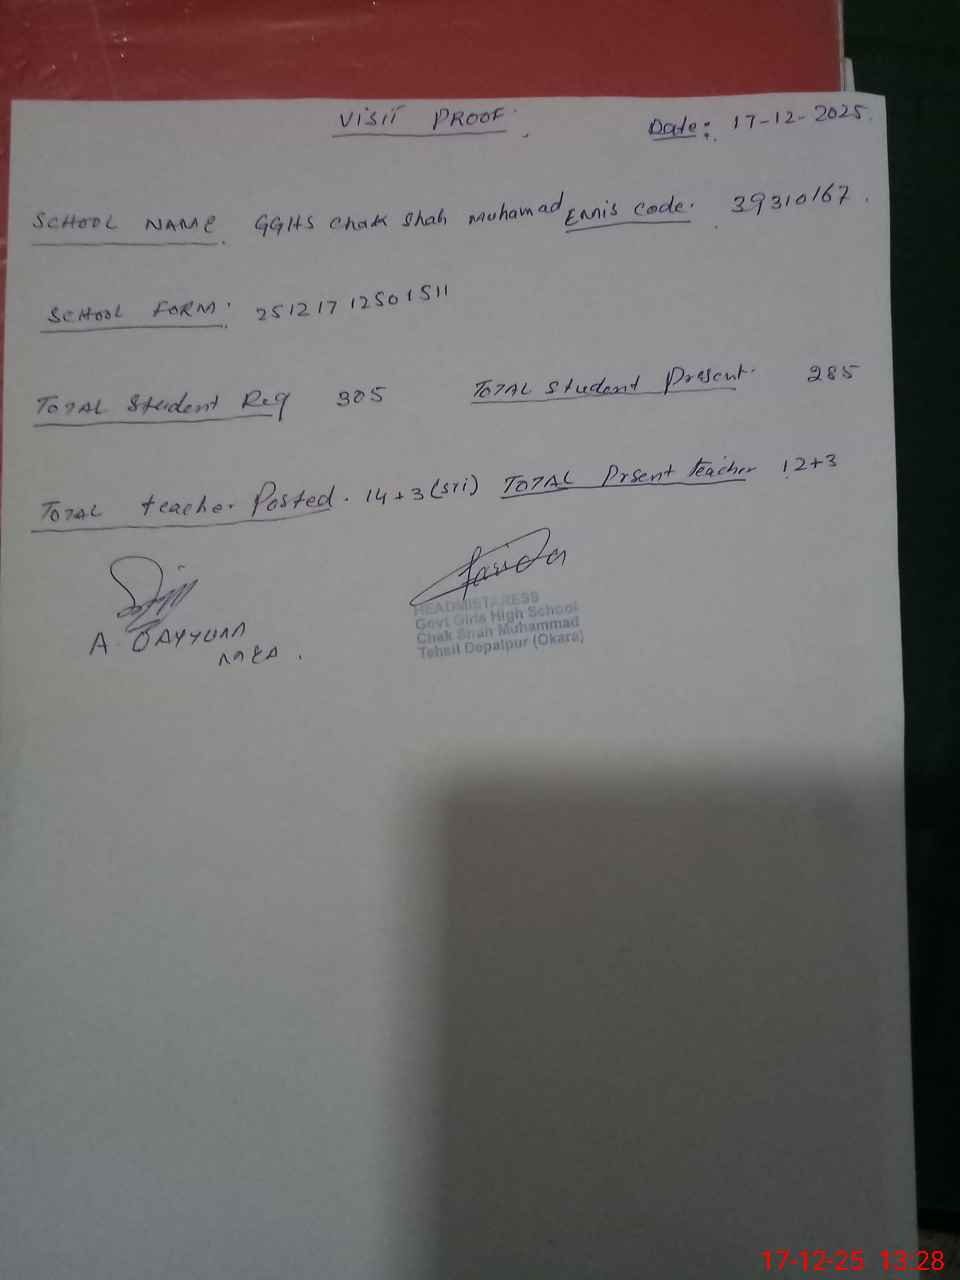 VISIT PROOF.
Date: 17-12-2025.
SCHOOL NAME. GGHS Chak Shah Muhamad EMIS Code. 39310167.
SCHOOL FORM. 251217 12501511
TOTAL Student Reg 305 TOTAL Student Present. 285
TOTAL teacher Posted. 14+3(STI) TOTAL Prsent teacher 12+3
A. QAYYUM
MEA.
HEADMISTARESS
Govt Girls High School
Chak Shah Muhammad
Tehsil Depalpur (Okara)
17-12-25 13:28